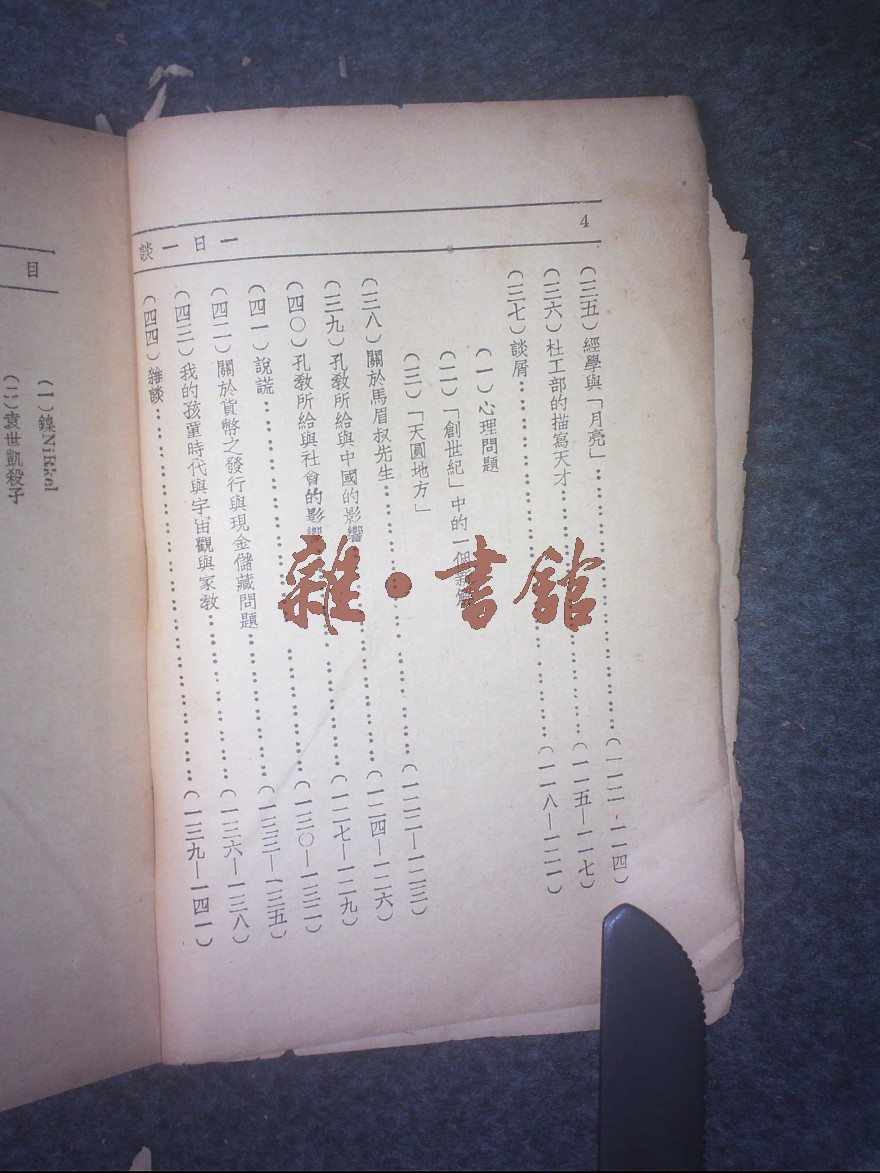 4
一日一談
(三五)經學與「月亮」……(一一二-一一四)
(三六)杜工部的描寫天才……(一一五—一一七)
(三七)談屑……(一一八—一二一)
(一)心理問題
(二)「創世紀」中的一個
(三)「天圓地方」
(三八)關於馬眉叔先生……(一二二—一二三)
(三九)孔教所給與中國的影響……(一二四—一二六)
(四〇)孔教所給與社會的影響……(一二七—一二九)
(四一)說謊……(一三〇—一三二)
(四二)關於貨幣之發行與現金儲藏問題……(一三三—一三五)
(四三)我的孩童時代與宇宙觀與家教……(一三六—一三八)
(四四)雜談……(一三九—一四一)
目
(一)鎳NiRkel
(二)袁世凱殺子
雜•書館